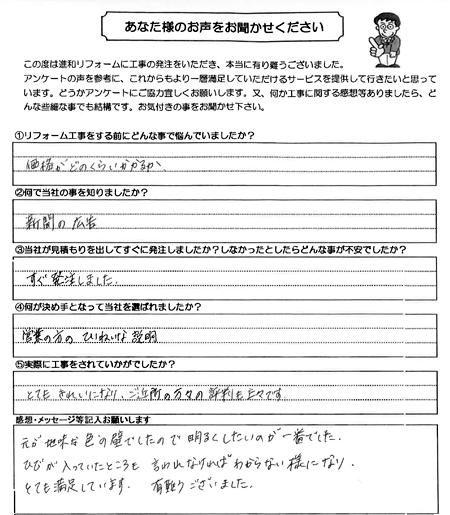 あなた様のお声をお聞かせください
この度は進和リフォームに工事の発注をいただき、本当に有り難うございました。
アンケートの声を参考に、これからもより一層満足していただけるサービスを提供して行きたいと思って
います。どうかアンケートにご協力宜しくお願いします。又、何か工事に関する感想等ありましたら、ど
んな些細な事でも結構です。お気付きの事をお聞かせ下さい。
①リフォーム工事をする前にどんな事で悩んでいましたか？
価格がどのくらいかかるか、
②何で当社の事を知りましたか？
新聞の広告
③当社が見積もりを出してすぐに発注しましたか？しなかったとしたらどんな事が不安でしたか？
すぐ発注しました。
④何が決め手となって当社を選ばれましたか？
営業の方の ていねいな説明
⑤実際に工事をされていかがでしたか？
とても きれいになり、ご近所の方々の評判も上々です。
感想・メッセージ等記入お願いします
元が地味な色の壁でしたので明るくしたいのが一番でした。
ひびが入っていたところも 言われなければわからない様になり、
とても満足しています。 有難うございました。